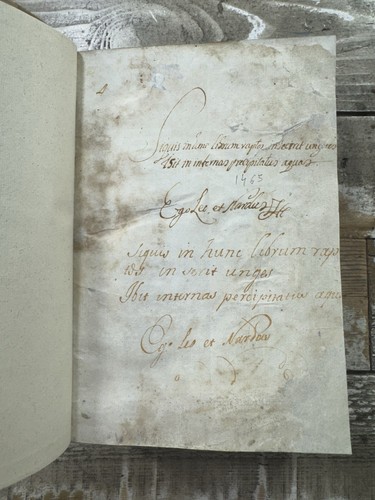 Siquis in hunc librum raptos inserit ungues
Ibit in internas precipitatus aquas
1463
Ego Leo, et Nardus
siquis in hunc lebrum rap
tos in serit unges
Ibit internas percipitatus aqu
Ego leo et Nardus